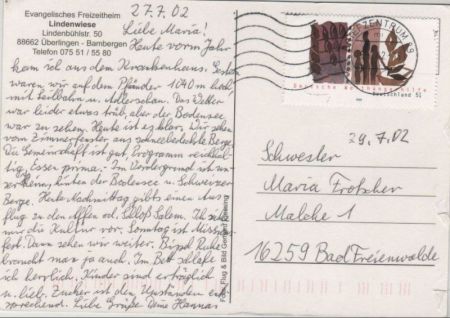 Evangelisches Freizeitheim
Lindenwiese
Lindenbühlstr. 50
88662 Überlingen - Bambergen
Telefon 075 51 / 55 80
27.7.02
Liebe Maria!
Heute vorm Jahr
kam ich aus dem Krankenhaus. Gestern
waren wir auf dem Pfänder 1040 m hoch
mit Seilbahn u. Adlerschau. Das Wetter
war leider etwas trüb, aber der Bodensee
war zu sehen. Heute ist es klar. Wir sehen
vom Zimmerfenster aus schneebedeckte Berge.
Die Gemeinschaft ist gut, Programm reichhal-
tig, Essen prima. Im Vordergrund ist
hinten der Bodensee u. Schweizer
Berge. Heute Nachmittag gibts einen Aus-
flug zu den Affen od. Schloß Salem. Ich
mir die Kultur vor. Sonntag ist
Dann sehen wir weiter. Bissel Ruhe
braucht man ja auch. Im Bett schlafe
ich herrlich. Kinder sind erträglich
u. lieb. ist den Umständen
sprechend. Liebe Grüße Deine
Flug & Bild
POSTZENTRUM 89
Deutsche Wohlfahrtspflege
Deutschland 51
29.7.02
Schwester
Maria Frötscher
Malche 1
16259 Bad Freienwalde